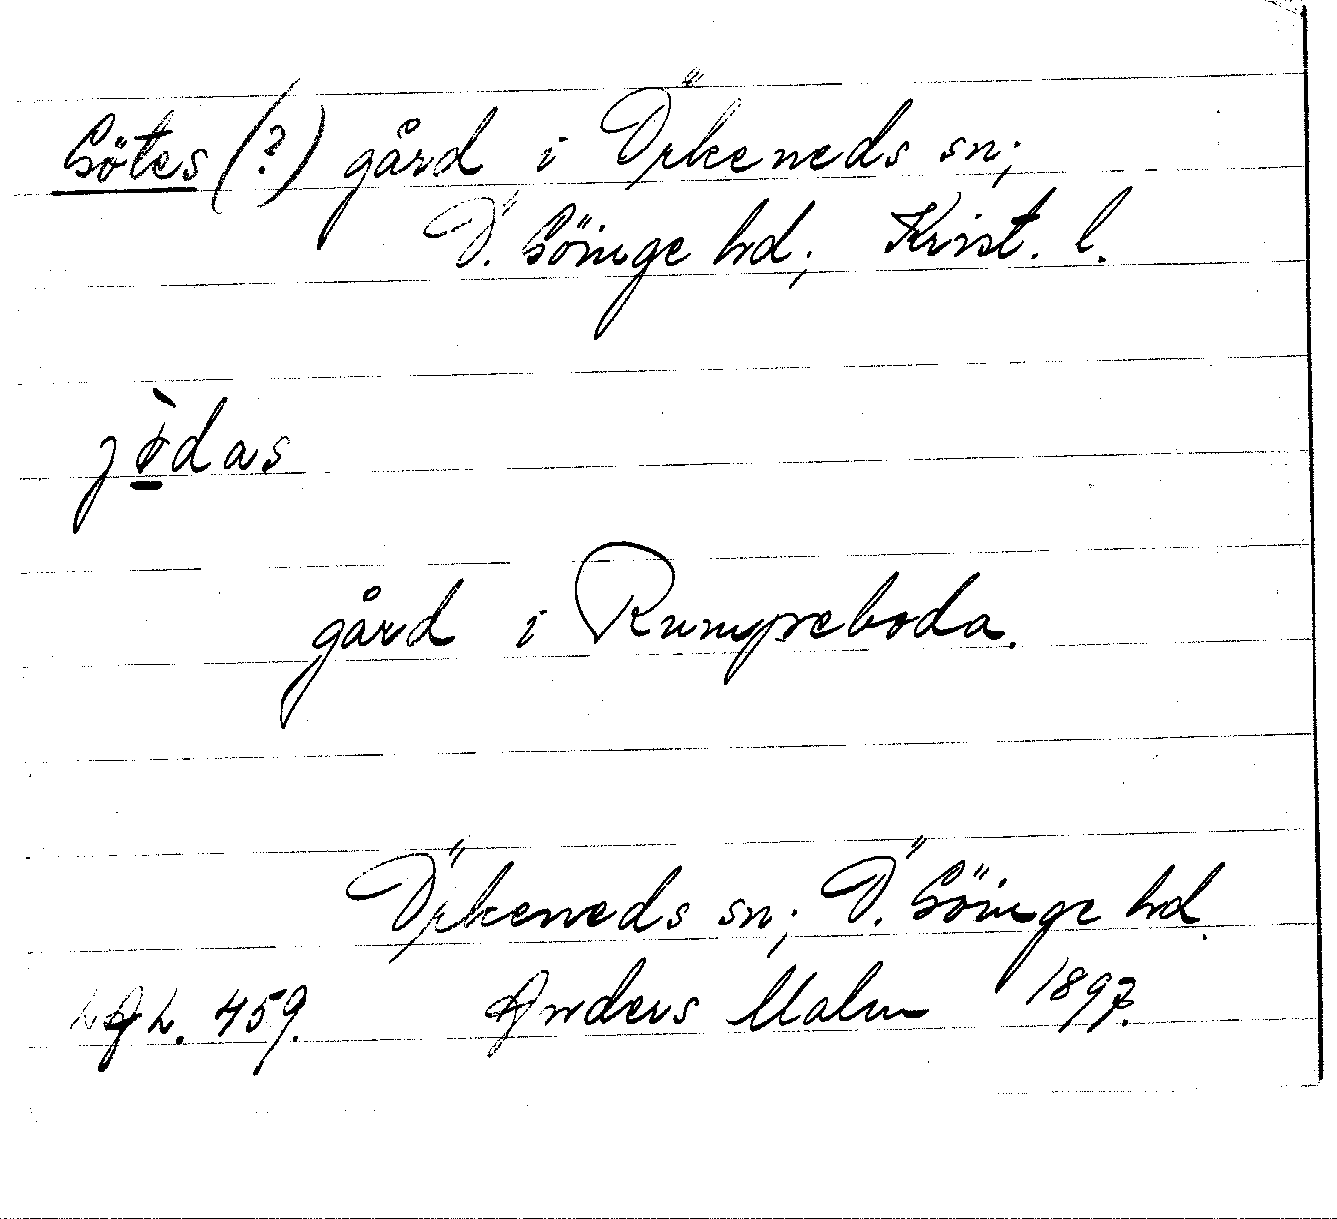 Götes (?) gård i Örkeneds sn;
Ö. Göinge hd; Krist. l.
jø̀das
gård i Rumpeboda.
Örkeneds sn; Ö. Göinge hd.
LAL. 459. Anders Malm 1897.